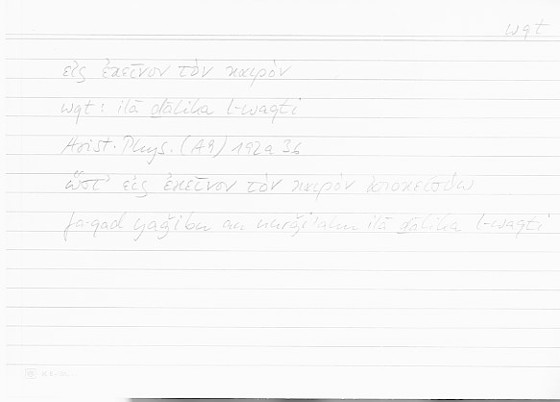 wqt
εἰς ἐκεῖνον τὸν καιρόν
wqt: ilā ḏālika l-waqti
Arist. Phys. (A9) 192a 36
ὥστ' εἰς ἐκεῖνον τὸν καιρὸν ἀποκείσθω
fa-qad yaǧibu an nurǧiʾahu ilā ḏālika l-waqti